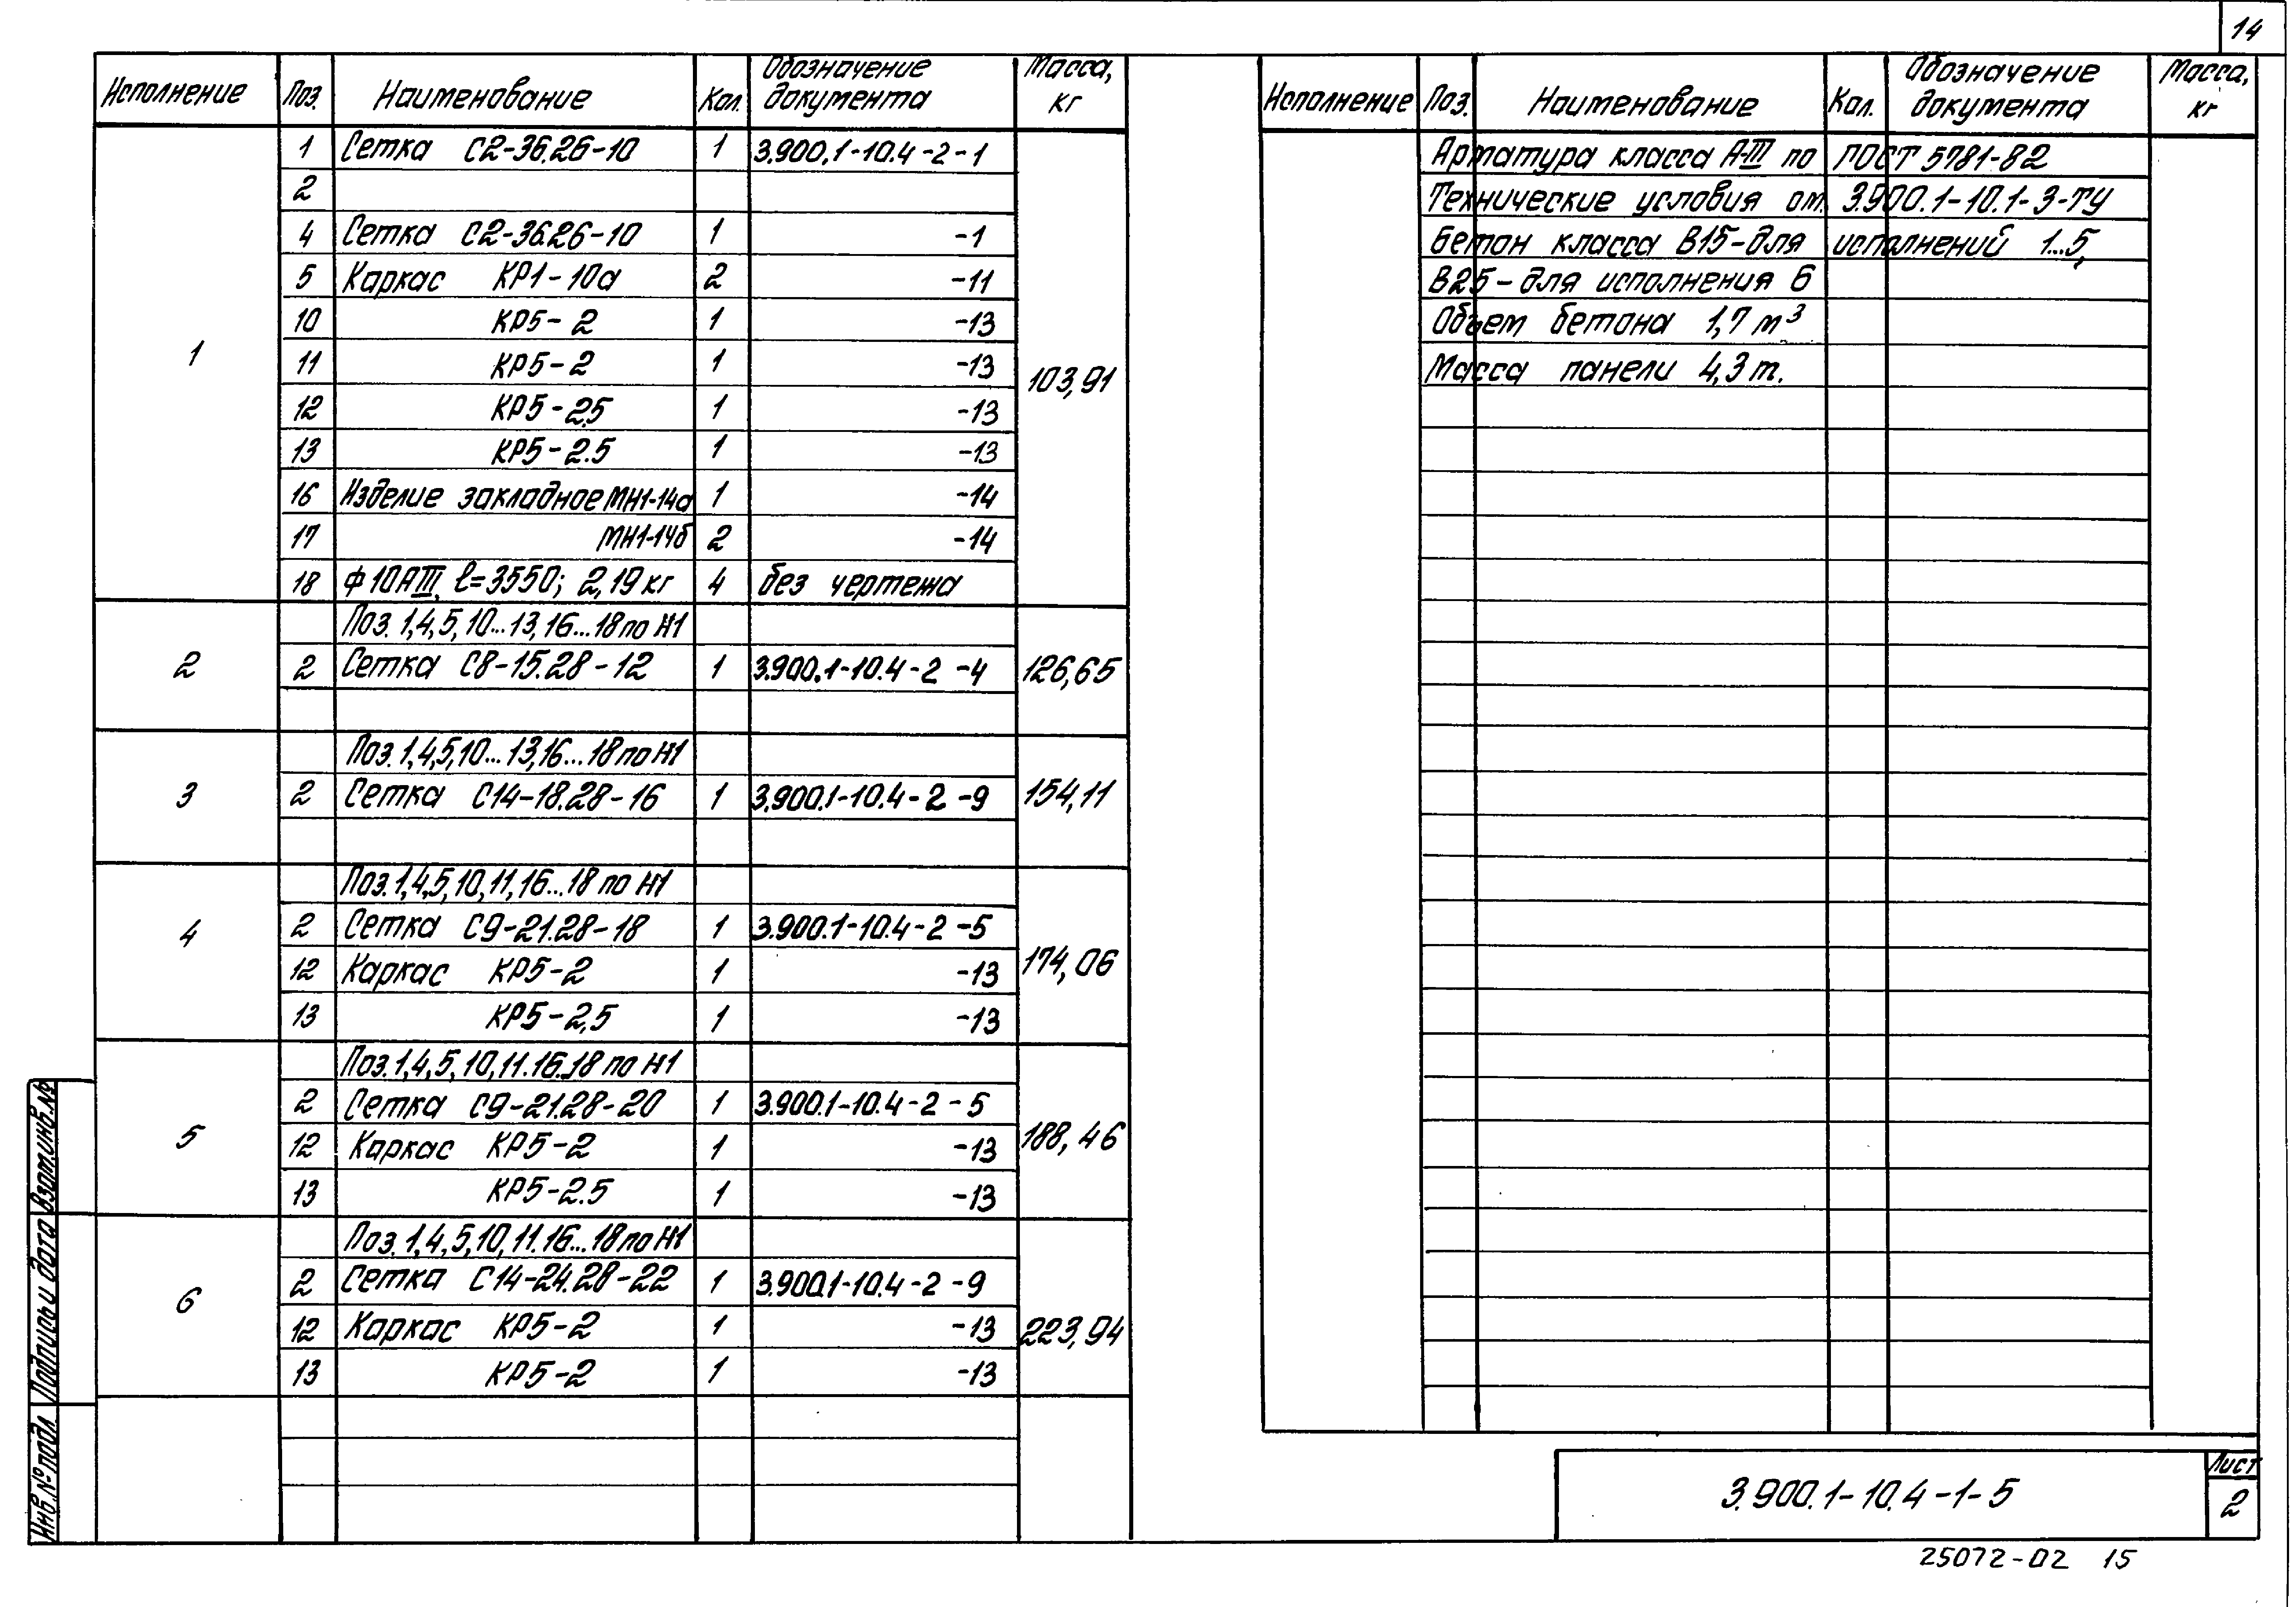 14
Исполнение Поз. Наименование Кол. Обозначение документа Масса, кг
1 Сетка С2-36.26-10 1 3.900.1-10.4-2-1
2
4 Сетка С2-36.26-10 1 -1
5 Каркас КР1-10а 2 -11
10 КР5-2 1 -13
1 11 КР5-2 1 -13 103,91
12 КР5-2.5 1 -13
13 КР5-2.5 1 -13
16 Изделие закладное МН1-14а 1 -14
17 МН1-14б 2 -14
18 Ф10АIII, ℓ=3550; 2,19 кг 4 без чертежа
Поз. 1,4,5,10...13,16...18 по Н1
2 2 Сетка С8-15.28-12 1 3.900.1-10.4-2-4 126,65
Поз. 1,4,5,10...13,16...18 по Н1
3 2 Сетка С14-18.28-16 1 3.900.1-10.4-2-9 154,11
Поз. 1,4,5,10,11,16...18 по Н1
4 2 Сетка С9-21.28-18 1 3.900.1-10.4-2-5
12 Каркас КР5-2 1 -13 174,06
13 КР5-2,5 1 -13
Поз. 1,4,5,10,11.16..18 по Н1
2 Сетка С9-21.28-20 1 3.900.1-10.4-2-5
5 12 Каркас КР5-2 1 -13 188,46
13 КР5-2.5 1 -13
Поз. 1,4,5,10,11.16...18 по Н1
6 2 Сетка С14-24.28-22 1 3.900.1-10.4-2-9
12 Каркас КР5-2 1 -13 223,94
13 КР5-2 1 -13
Исполнение Поз. Наименование Кол. Обозначение документа Масса, кг
Арматура класса А-III по ГОСТ 5781-82
Технические условия см. 3.900.1-10.1-3-ТУ
Бетон класса В15-для исполнений 1...5,
В25-для исполнения 6
Объем бетона 1,7 м³
Масса панели 4,3 т.
Инв.№ подл Подпись и дата Взам.инв.№
3.900.1-10.4-1-5
Лист
2
25072-02 15